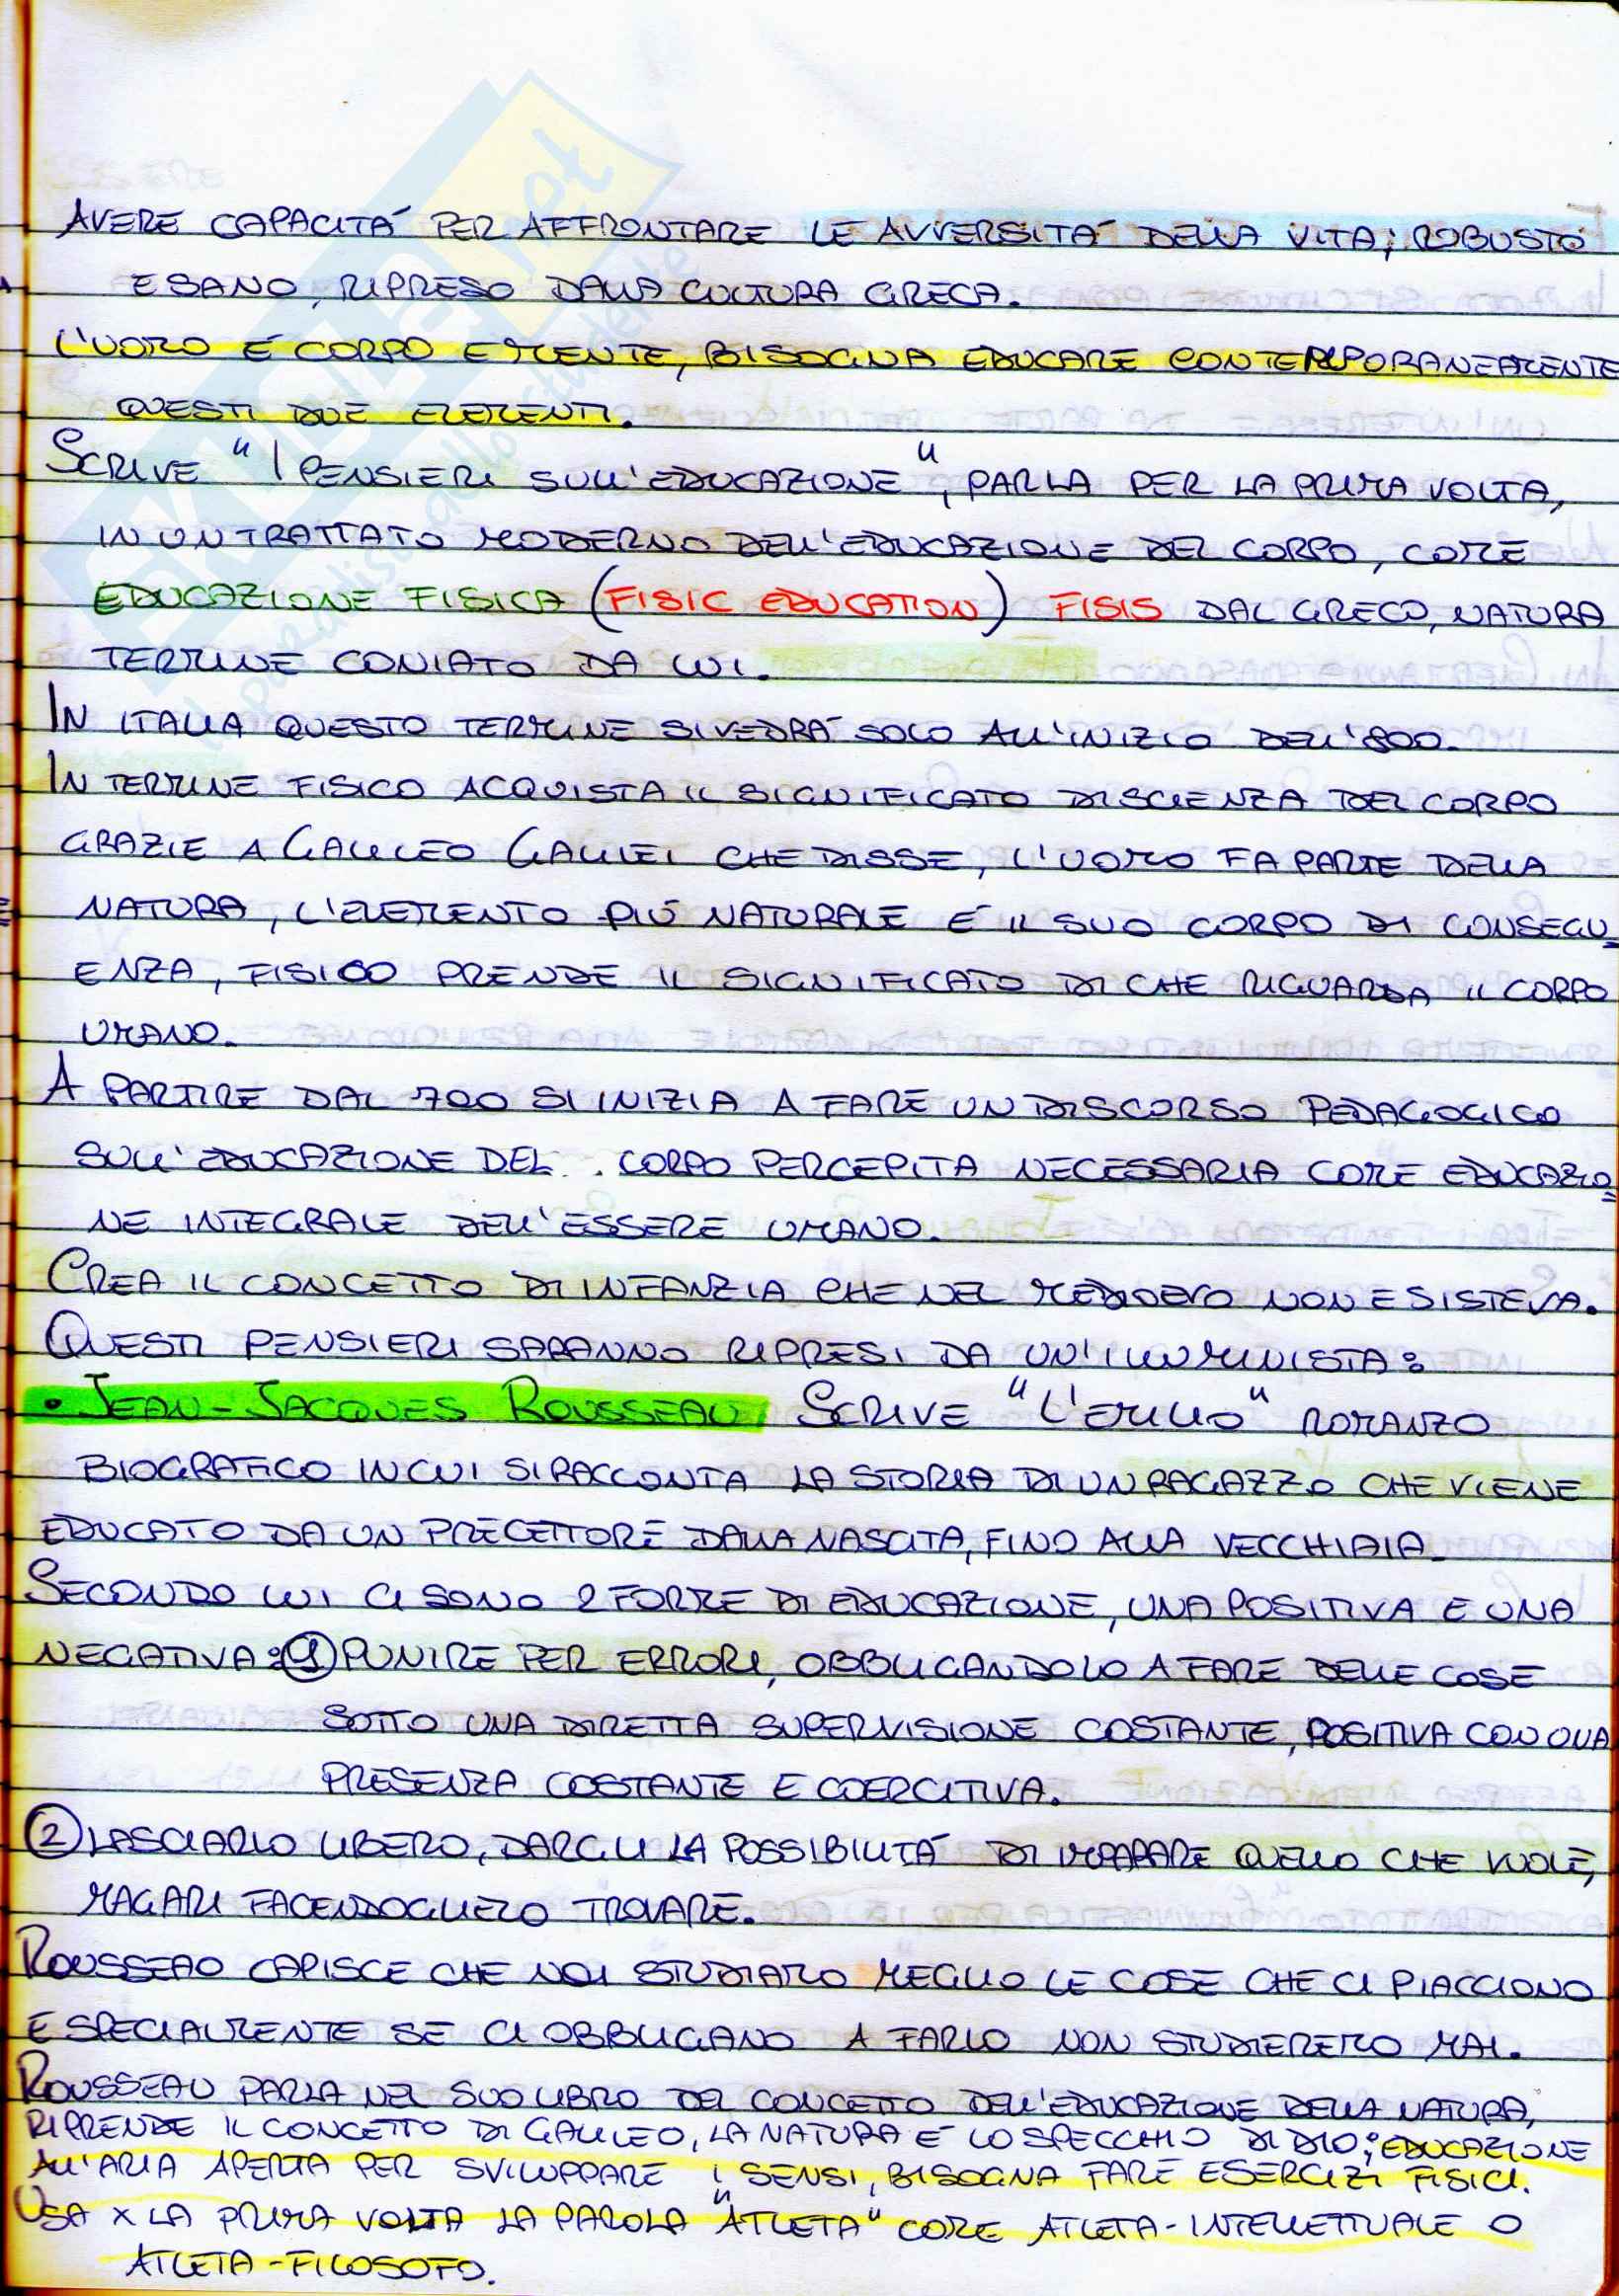 AVERE CAPACITÁ PER AFFRONTARE LE AVVERSITÁ DELLA VITA; ROBUSTO
E SANO, RIPRESO DALLA CULTURA GRECA.
L'UOMO É CORPO E MENTE, BISOGNA EDUCARE CONTEMPORANEAMENTE
QUESTI DUE ELEMENTI.
SCRIVE "I PENSIERI SULL'EDUCAZIONE", PARLA PER LA PRIMA VOLTA,
IN UN TRATTATO MODERNO DELL'EDUCAZIONE DEL CORPO, COME
EDUCAZIONE FISICA (FISIC EDUCATION) FISIS DAL GRECO, NATURA
TERMINE CONIATO DA LUI.
IN ITALIA QUESTO TERMINE SI VEDRÁ SOLO ALL'INIZIO DELL'800.
IN TERMINE FISICO ACQUISTA IL SIGNIFICATO DI SCIENZA DEL CORPO
GRAZIE A GALILEO GALILEI CHE DISSE, L'UOMO FA PARTE DELLA
NATURA, L'ELEMENTO PIÚ NATURALE É IL SUO CORPO DI CONSEGU=
ENZA, FISICO PRENDE IL SIGNIFICATO DI CHE RIGUARDA IL CORPO
UMANO.
A PARTIRE DAL 700 SI INIZIA A FARE UN DISCORSO PEDAGOGICO
SULL'EDUCAZIONE DEL CORPO PERCEPITA NECESSARIA COME EDUCAZIO=
NE INTEGRALE DELL'ESSERE UMANO.
CREA IL CONCETTO DI INFANZIA CHE NEL MEDIOEVO NON ESISTEVA.
QUESTI PENSIERI SARANNO RIPRESI DA UN'ILLUMINISTA:
• JEAN-JACQUES ROUSSEAU SCRIVE "L'EMILIO" ROMANZO
BIOGRAFICO IN CUI SI RACCONTA LA STORIA DI UN RAGAZZO CHE VIENE
EDUCATO DA UN PRECETTORE DALLA NASCITA, FINO ALLA VECCHIAIA.
SECONDO LUI CI SONO 2 FORME DI EDUCAZIONE, UNA POSITIVA E UNA
NEGATIVA: 1 PUNIRE PER ERRORI, OBBLIGANDOLO A FARE DELLE COSE
SOTTO UNA DIRETTA SUPERVISIONE COSTANTE, POSITIVA CON UNA
PRESENZA COSTANTE E COERCITIVA.
2 LASCIARLO LIBERO, DARGLI LA POSSIBILITÁ DI IMPARARE QUELLO CHE VUOLE,
MAGARI FACENDOGLIELO TROVARE.
ROUSSEAU CAPISCE CHE NOI STUDIAMO MEGLIO LE COSE CHE CI PIACCIONO
E SPECIALMENTE SE CI OBBLIGANO A FARLO NON STUDIEREMO MAI.
ROUSSEAU PARLA NEL SUO LIBRO DEL CONCETTO DELL'EDUCAZIONE DELLA NATURA,
RIPRENDE IL CONCETTO DI GALILEO, LA NATURA É LO SPECCHIO DI DIO; EDUCAZIONE
ALL'ARIA APERTA PER SVILUPPARE I SENSI, BISOGNA FARE ESERCIZI FISICI.
USA X LA PRIMA VOLTA LA PAROLA "ATLETA" COME ATLETA-INTELLETTUALE O
ATLETA-FILOSOFO.